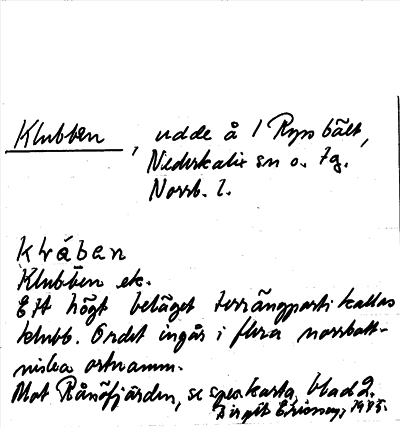 Klubben, udde å 1 Ryss bält,
Nederkalix sn o. tg.
Norrb. l.
Klúban
Klubben ek.
Ett högt beläget terrängparti kallas
klubb. Ordet ingår i flera norrbott-
niska ortnamn.
Mot Rånöfjärden, se spec.karta, blad 2.
Birgit Ericson, 1985.